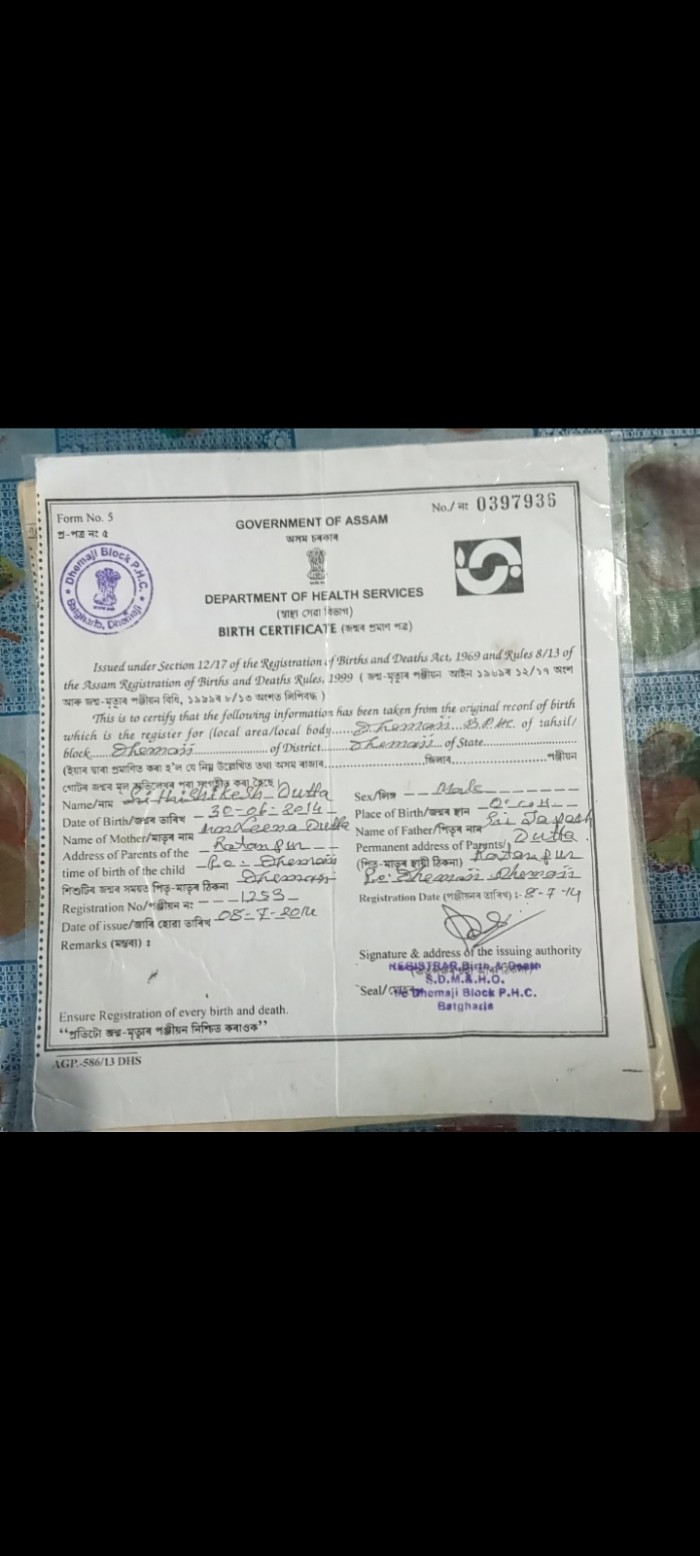 Form No. 5
প্ৰ-পত্ৰ নং ৫
No./ নং 0397936
GOVERNMENT OF ASSAM
অসম চৰকাৰ
Dhemaji Block P.H.C.
Batgharia, Dhemaji
DEPARTMENT OF HEALTH SERVICES
(স্বাস্থ্য সেৱা বিভাগ)
BIRTH CERTIFICATE (জন্মৰ প্ৰমাণ পত্ৰ)
Issued under Section 12/17 of the Registration of Births and Deaths Act, 1969 and Rules 8/13 of
the Assam Registration of Births and Deaths Rules, 1999 ( জন্ম-মৃত্যুৰ পঞ্জীয়ন আইন ১৯৬৯ৰ ১২/১৭ অংশ
আৰু জন্ম-মৃত্যুৰ পঞ্জীয়ন বিধি, ১৯৯৯ৰ ৮/১৩ অংশত লিপিবদ্ধ )
This is to certify that the following information has been taken from the original record of birth
which is the register for (local area/local body......Dhemaji...B.P.H.C. of tahsil/
block......Dhemaji......of District......Dhemaji...of State......
(ইয়াৰ দ্বাৰা প্ৰমাণিত কৰা হ'ল যে নিম্ন উল্লেখিত তথ্য অসম ৰাজ্যৰ......জিলাৰ......পঞ্জীয়ন
Name/নাম Dutta
Sex/লিঙ্গ Male
Date of Birth/জন্মৰ তাৰিখ 30-06-2014
Place of Birth/জন্মৰ স্থান
Name of Mother/মাতৃৰ নাম Dutta
Name of Father/পিতৃৰ নাম Sri Tapash
Dutta
Address of Parents of the Ratanpur
Permanent address of Parents/
time of birth of the child Po: Dhemaji
(পিতৃ-মাতৃৰ স্থায়ী ঠিকনা) Ratanpur
শিশুটিৰ জন্মৰ সময়ত পিতৃ-মাতৃৰ ঠিকনা Dhemaji
Po: Dhemaji Dhemaji
Registration No/পঞ্জীয়ন নং 1253
Registration Date (পঞ্জীয়নৰ তাৰিখ) :- 8-7-14
Date of issue/জাৰি হোৱা তাৰিখ 08-7-2014
Remarks (মন্তব্য) :
Signature & address of the issuing authority
REGISTRAR Birth & Death
S.D.M.& H.O.
Seal/
Dhemaji Block P.H.C.
Batgharia
Ensure Registration of every birth and death.
“প্ৰতিটো জন্ম-মৃত্যুৰ পঞ্জীয়ন নিশ্চিত কৰাওক”
AGP.-586/13 DHS